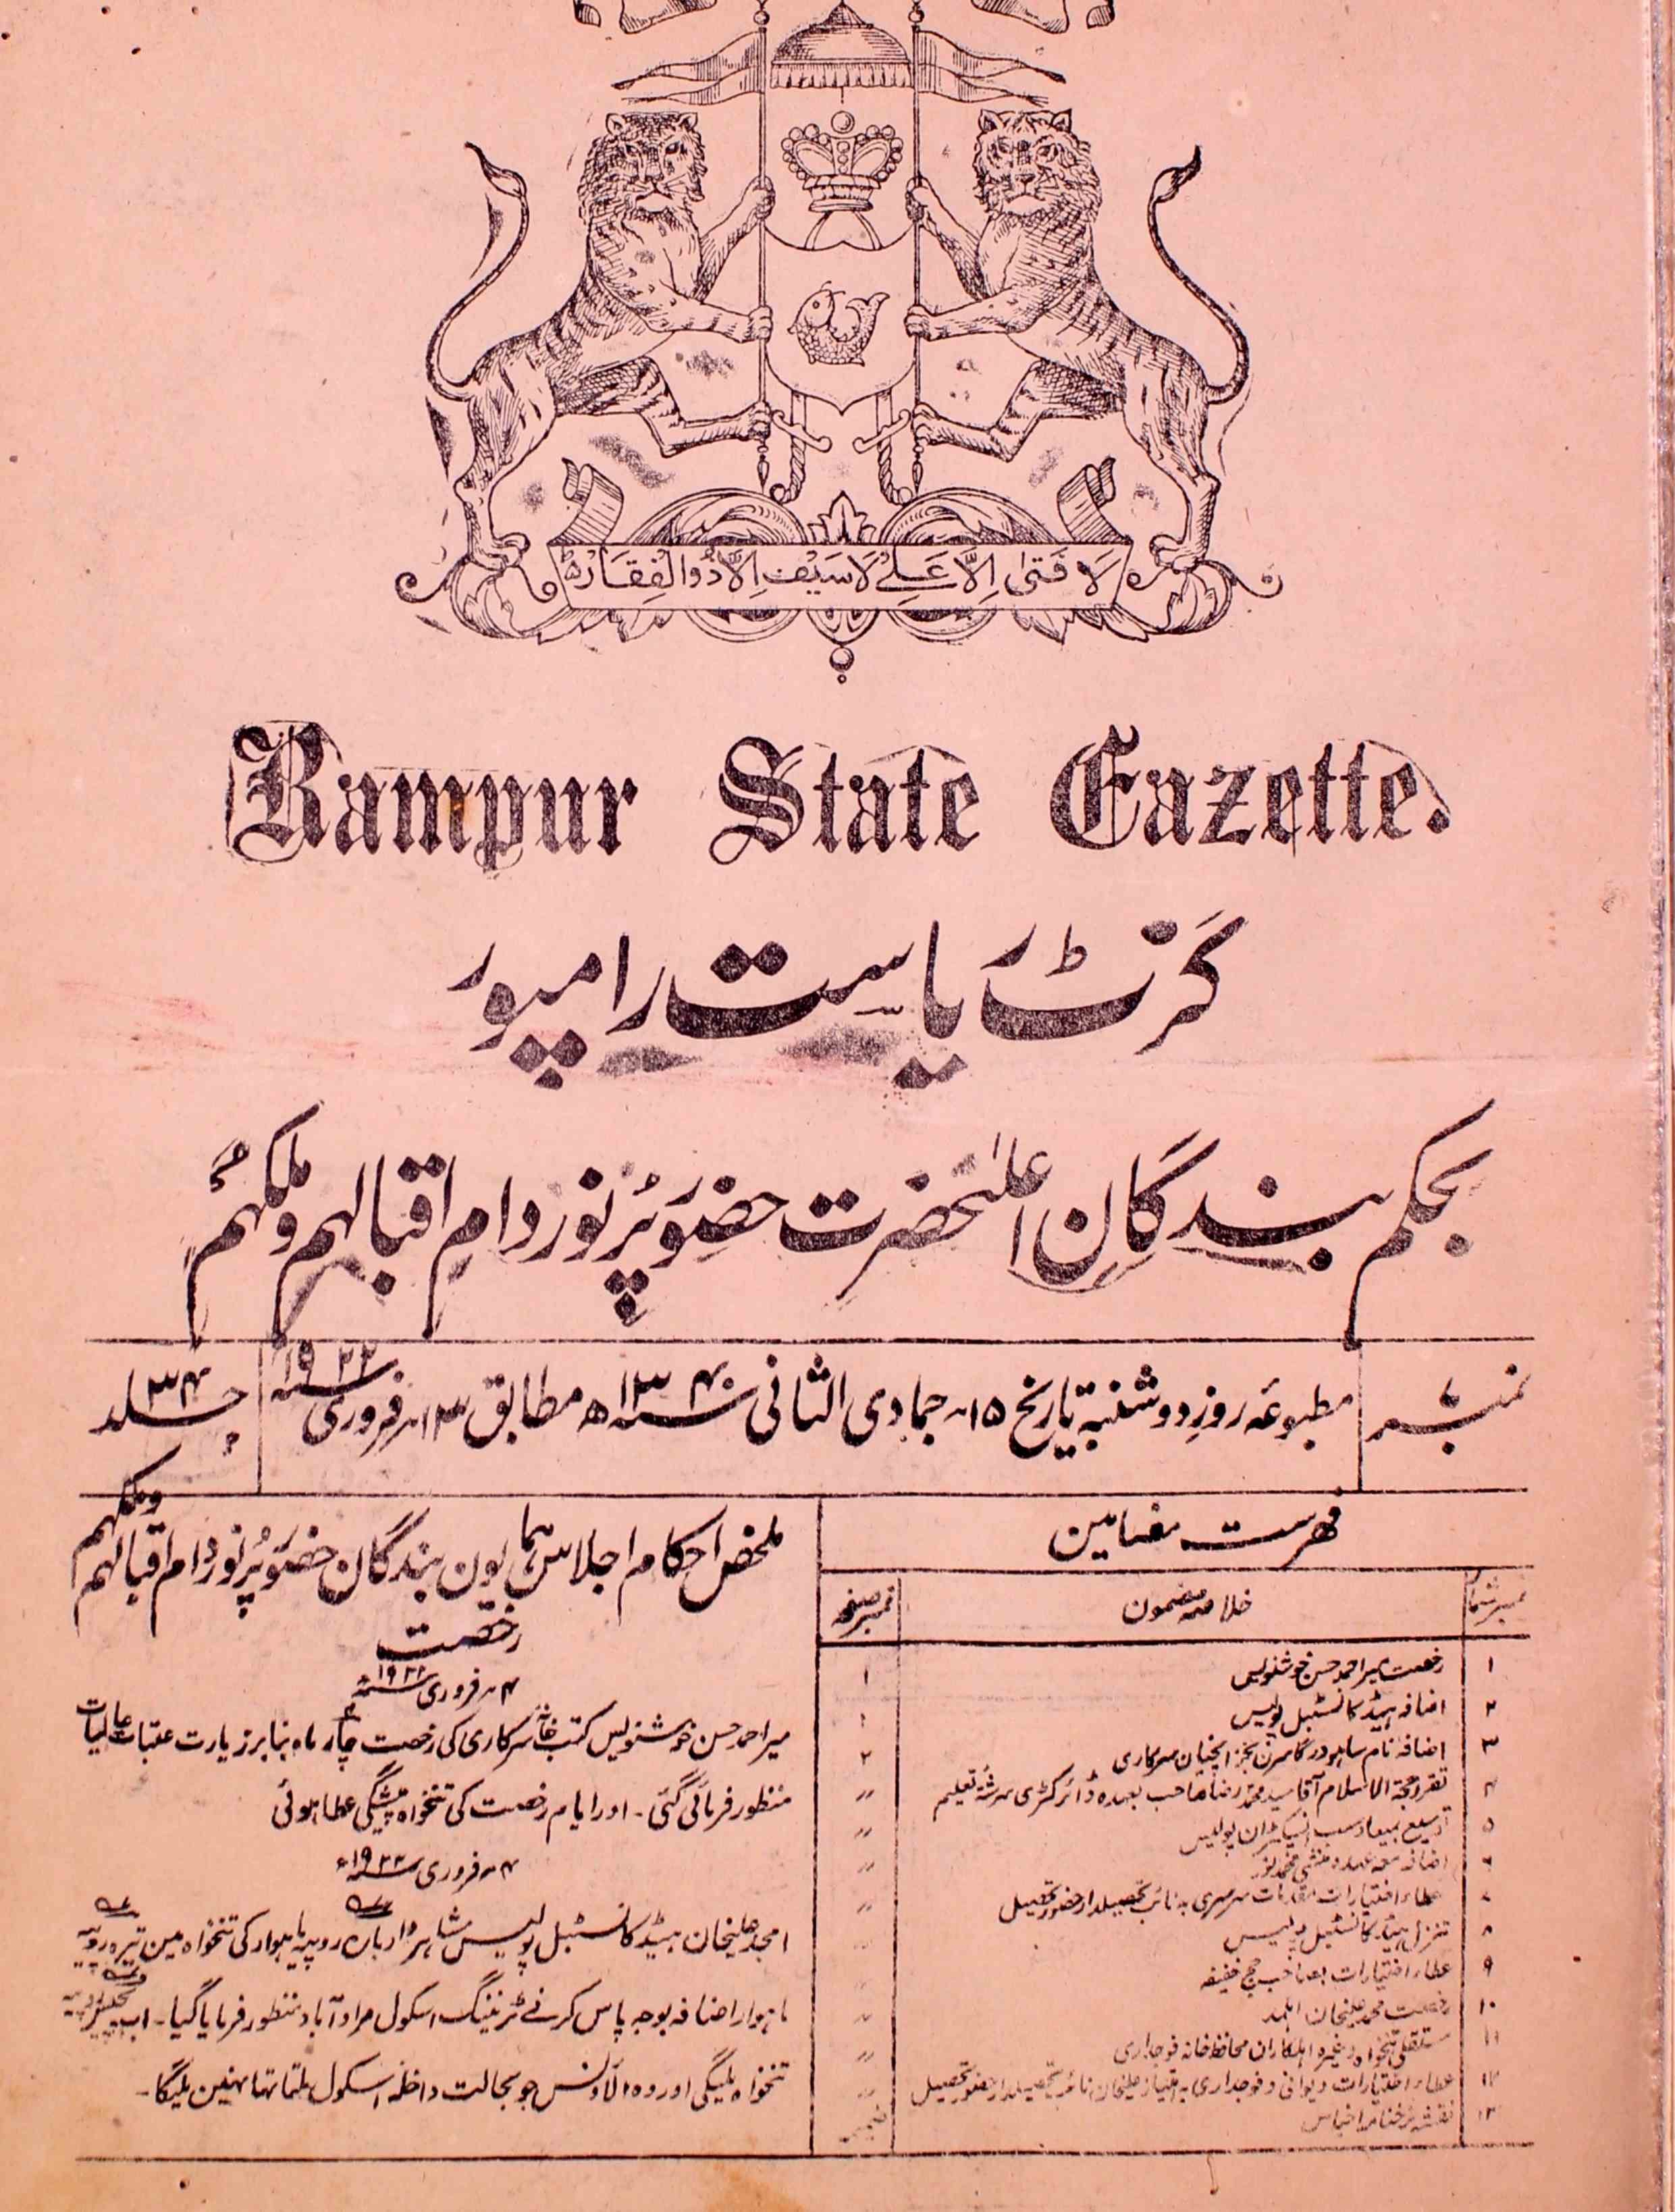 لَا فَتىٰ اِلَّا عَلِے لَا سَيْف اِلَّا ذُوالْفِقَار
Rampur State Gazette.
گزٹ ریاست رامپور
بحکم بندگانِ اعلیٰحضرت حضور پُرنور دام اقبالہم و ملکہم
نمبر
مطبوعہ روز دوشنبہ تاریخ ۱۵۔ جمادی الثانی سنہ ۱۳۴۰ھ مطابق ۱۳۔ فروری سنہ ۱۹۲۲
جلد ۳۴
فہرست مضامین
نمبر شمار خلاصہ مضمون نمبر صفحہ
۱ رخصت میر احمد حسن خوشنویس ۱
۲ اضافہ ہیڈ کانسٹبل پولیس ۱
۳ اضافہ نام ساہو درگا سرن بخزانچیان سرکاری ۲
۴ تقرر حجۃ الاسلام آقا سید محمد رضا صاحب بعہدہ ڈائرکٹری سررشتہ تعلیم 〃
۵ توسیع میعاد سب انسپکٹران پولیس 〃
۶ اضافہ معہ عہدہ منشی محمد نور 〃
۷ عطاء اختیارات مقدمات سرسری بہ نائب تحصیلدار حضور تحصیل 〃
۸ تنزل ہیڈ کانسٹبل پولیس
۹ عطاء اختیارات بصاحب جج خفیفہ
۱۰ رخصت محمد علیخان اہلمد 〃
۱۱ مستقلی تنخواہ وغیرہ اہلکاران محافظ خانہ فوجداری 〃
۱۲ عطاء اختیارات دیوانی و فوجداری بہ امتیاز علیخان نائب تحصیلدار حضور تحصیل 〃
۱۳ نقشہ نرخنامہ اجناس
ملخص احکام اجلاس ہمایون بندگان حضور پُرنور دام اقبالہم و ملکہم
رخصت
۴۔ فروری سنہ ۱۹۲۲ء
میر احمد حسن خوشنویس کتب خانہ سرکاری کی رخصت چار ماہ بنا بر زیارت عتبات عالیات
منظور فرمائی گئی۔ اور ایام رخصت کی تنخواہ پیشگی عطا ہوئی
۴۔ فروری سنہ ۱۹۲۲ء
امجد علیخان ہیڈ کانسٹبل پولیس مشاہرہ دار بارہ روپیہ ماہوار کی تنخواہ مین تیرہ روپیہ
ماہوار اضافہ بوجہ پاس کرنے ٹرننگ اسکول مرادآباد منظور فرمایا گیا۔ اب پچیس روپیہ
تنخواہ ملیگی اور وہ الاونس جو بحالت داخلہ اسکول ملتا تھا نہین ملیگا۔